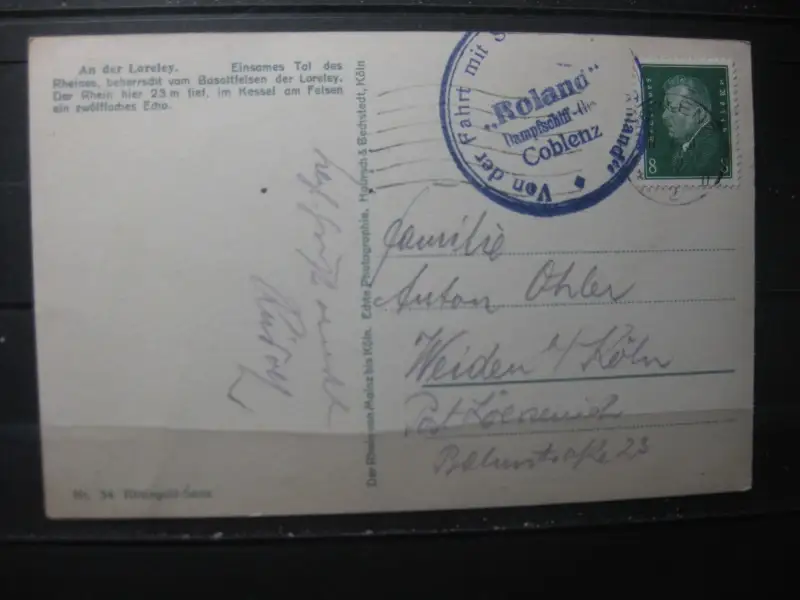 An der Loreley. Einsames Tal des
Rheines, beherrscht vom Basaltfelsen der Loreley.
Der Rhein hier 23 m tief, im Kessel am Felsen
ein zwölffaches Echo.
Nr. 34 Rheingold-Serie
Der Rhein von Mainz bis Köln. Echte Photographie. Hoursch & Bechstedt, Köln
Von der Fahrt mit
„Roland"
Dampfschiff
Coblenz
8
Familie
Anton Ohler
Weiden b/ Köln
Post Lövenich
Bahnstraße 23